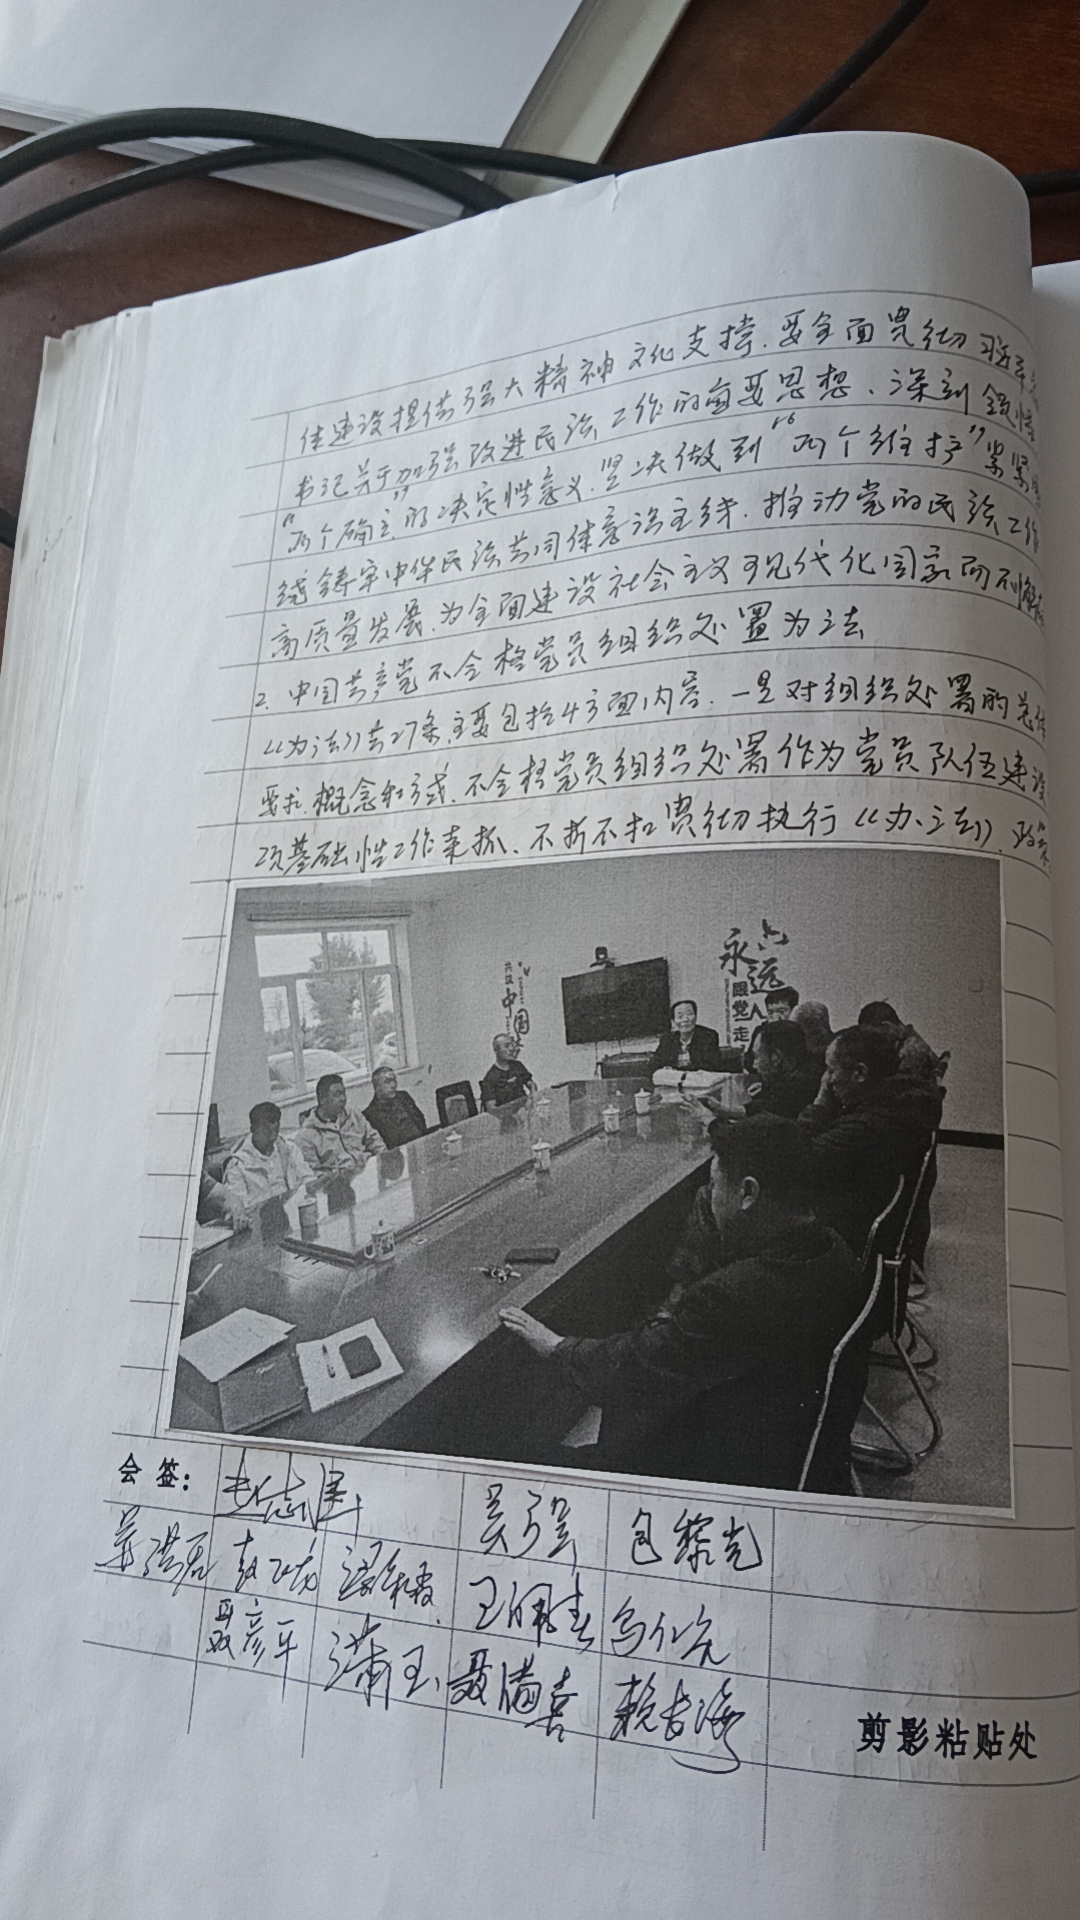 体建设提供强大精神文化支撑.要全面贯彻习近平
书记关于加强改进民族工作的重要思想、深刻领悟
“两个确立”的决定性意义.坚决做到“两个维护”紧紧
绕铸牢中华民族共同体意识主线.推动党的民族工作
高质量发展.为全面建设社会主义现代化国家而不懈
2.中国共产党不合格党员组织处置办法
《办法》共27条,主要包括4方面内容.一是对组织处置的总体
要求.概念和方式.不合格党员组织处置作为党员队伍建设
项基础性工作来抓、不折不扣贯彻执行《办法》.政策
永远
跟党走
共筑
中国
会签:
吴强 包黎光
聂彦平 蒲玉 聂满喜 赖长海
剪影粘贴处